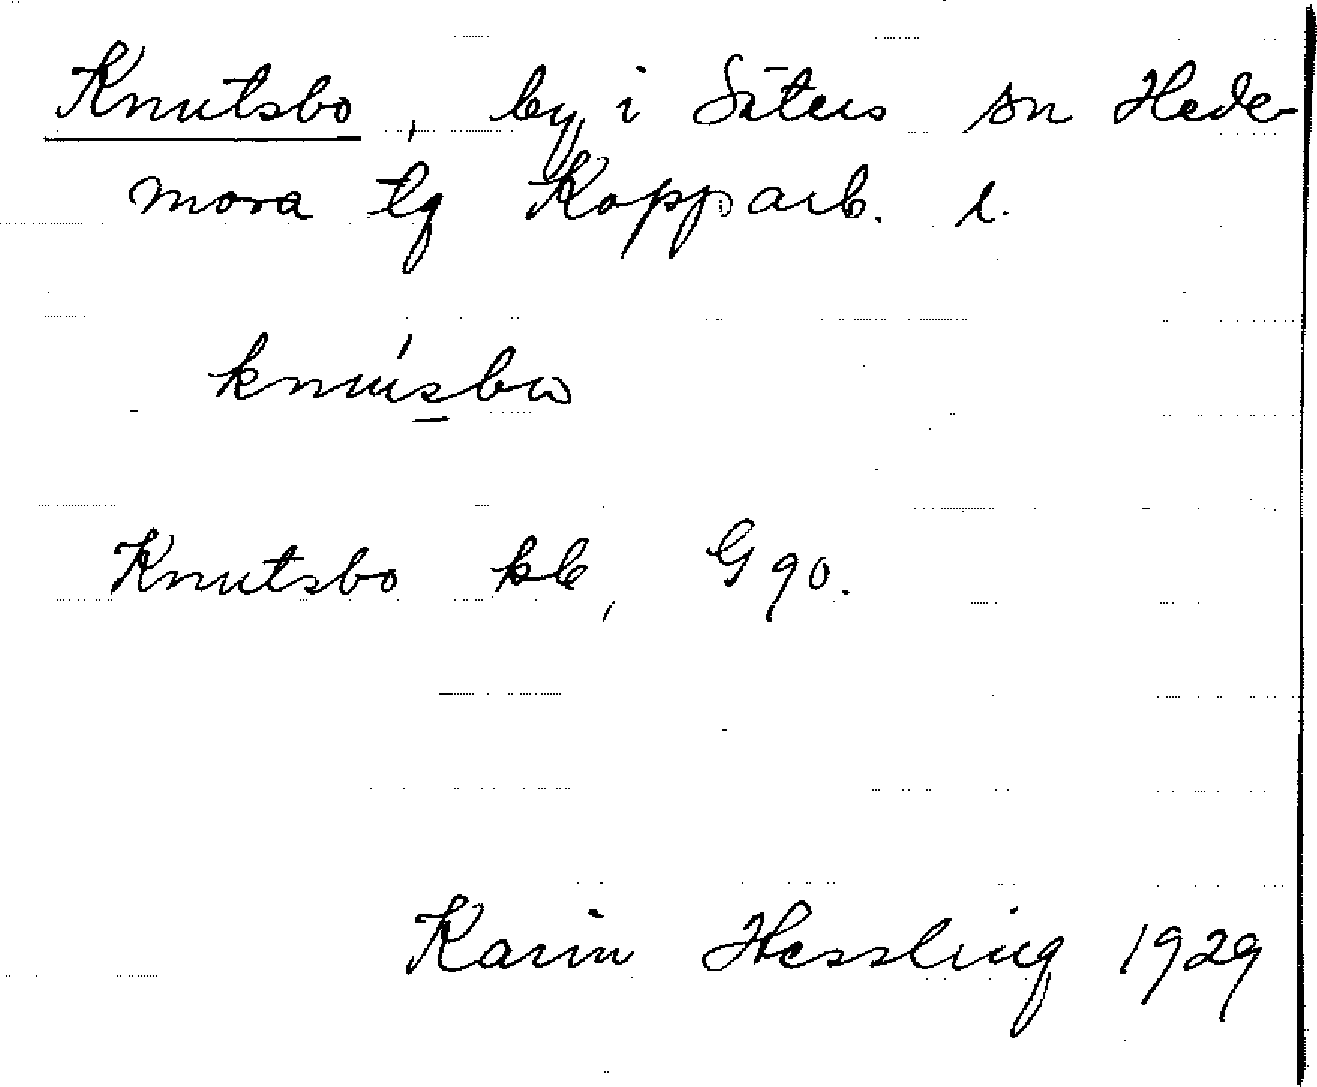 Knutsbo, by i Säters sn Hede-
mora tg Kopparb. l.
knu̍s̲bω
Knutsbo kb, G 90.
Karin Hessling 1929